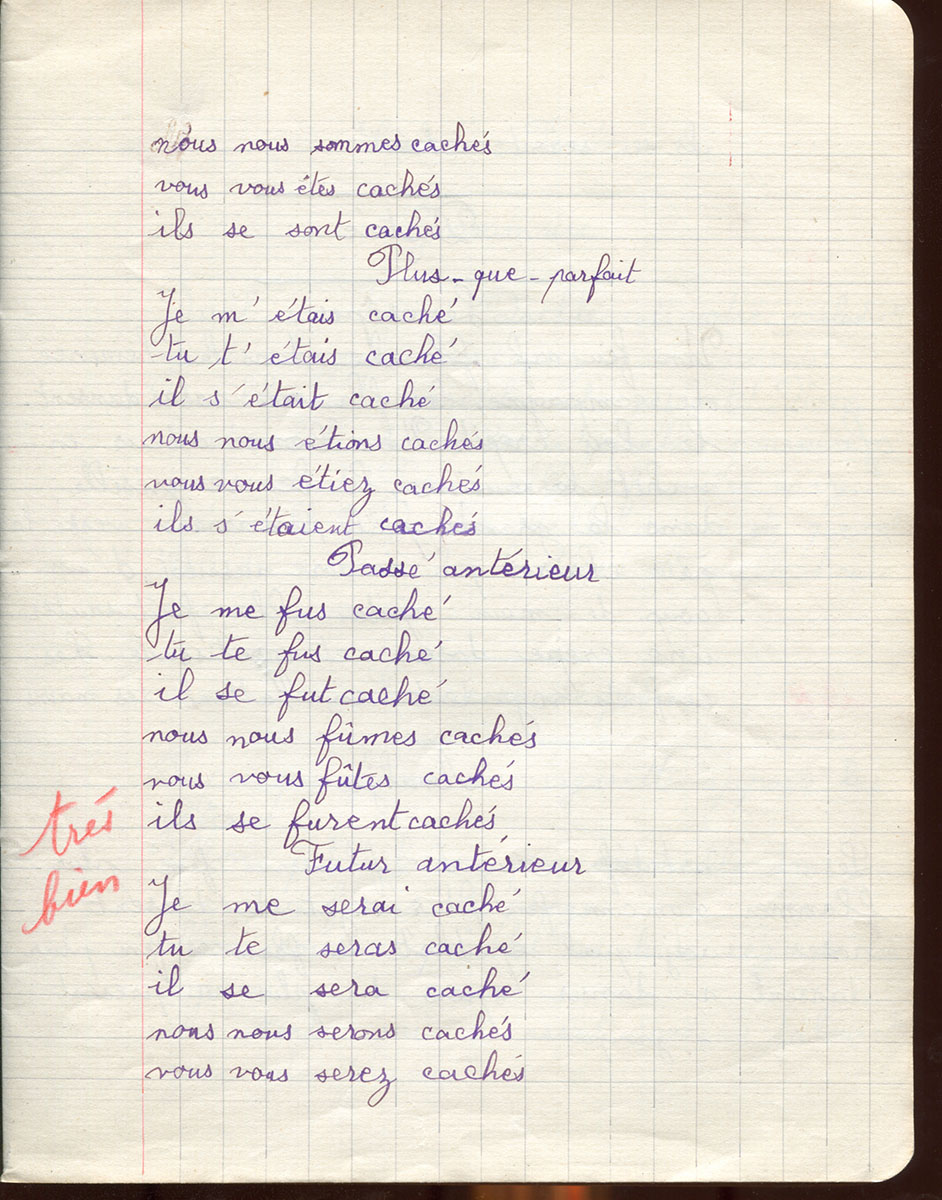 nous nous sommes cachés
vous vous êtes cachés
ils se sont cachés
Plus-que-parfait
Je m'étais caché
tu t'étais caché
il s'était caché
nous nous étions cachés
vous vous étiez cachés
ils s'étaient cachés
Passé antérieur
Je me fus caché
tu te fus caché
il se fut caché
nous nous fûmes cachés
vous vous fûtes cachés
ils se furent cachés
très
Futur antérieur
bien
Je me serai caché
tu te seras caché
il se sera caché
nous nous serons cachés
vous vous serez cachés